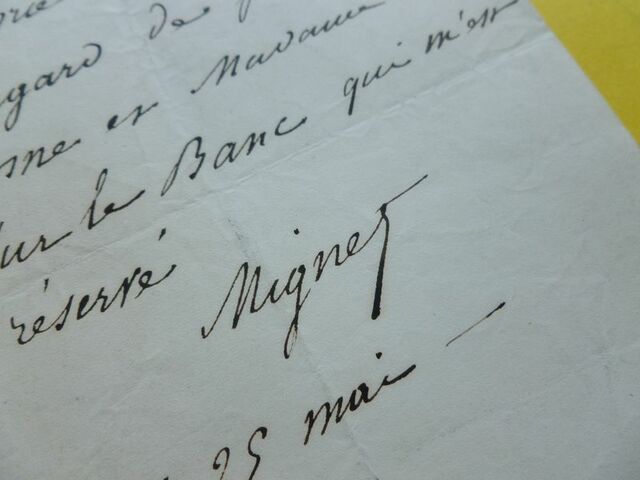 de
Madame
sur le Banc qui m'est
réservé
Mignet
25 mai